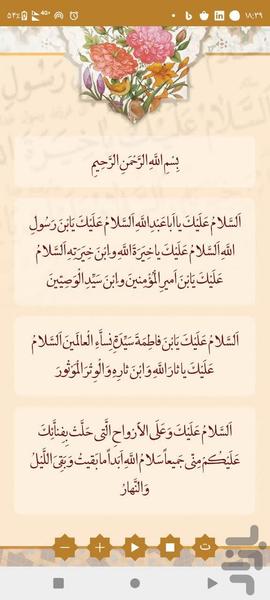 ۱۸:۳۹
۵۳٪
4G+
بِسْمِ اللَّهِ الرَّحْمَنِ الرَّحِيمِ
اَلسَّلامُ عَلَيْكَ يا اَبا عَبْدِاللَّهِ اَلسَّلامُ عَلَيْكَ يَابْنَ رَسُولِ
اللَّهِ اَلسَّلامُ عَلَيْكَ يا خِيَرَةَ اللَّهِ وابْنَ خِيَرَتِهِ اَلسَّلامُ
عَلَيْكَ يَابْنَ اَميرِ الْمُؤْمِنينَ وابْنَ سَيِّدِ الْوَصِيّينَ
اَلسَّلامُ عَلَيْكَ يَابْنَ فاطِمَةَ سَيِّدَةِ نِسآءِ الْعالَمينَ اَلسَّلامُ
عَلَيْكَ يا ثارَ اللَّهِ وابْنَ ثارِهِ وَالْوِتْرَ الْمَوْتُورَ
اَلسَّلامُ عَلَيْكَ وَعَلَى الاَْرواحِ الَّتى حَلَّتْ بِفِنآئِكَ
عَلَيْكُمْ مِنّى جَميعاً سَلامُ اللَّهِ اَبَداً ما بَقيتُ وَبَقِىَ اللَّيْلُ
وَالنَّهارُ
ت
بازار